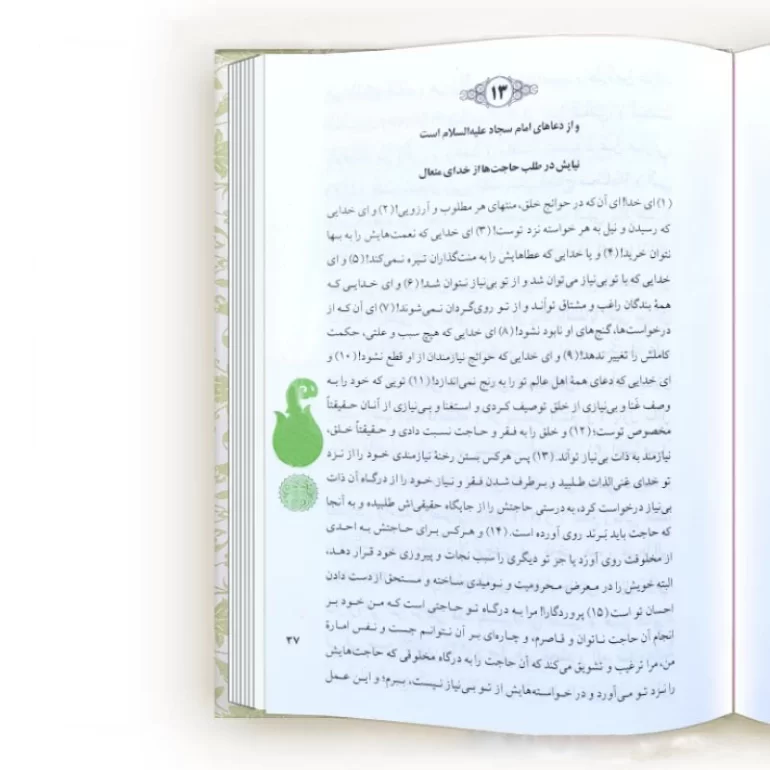 ۱۳
و از دعاهای امام سجاد علیه‌السلام است
نیایش در طلب حاجت‌ها از خدای متعال
(۱) ای خدا! ای آن‌که در حوائج خلق، منتهای هر مطلوب و آرزویی! (۲) و ای خدایی
که رسیدن و نیل به هر خواسته نزد توست! (۳) ای خدایی که نعمت‌هایش را به بها
نتوان خرید! (۴) و یا خدایی که عطاهایش را به منت‌گذاران تیره نمی‌کند! (۵) و ای
خدایی که با تو بی‌نیاز می‌توان شد و از تو بی‌نیاز نتوان شد! (۶) و ای خدایی که
همهٔ بندگان راغب و مشتاق توأند و از تو روی‌گردان نمی‌شوند! (۷) ای آن که از
درخواست‌ها، گنج‌های او نابود نشود! (۸) ای خدایی که هیچ سبب و علتی، حکمت
کاملش را تغییر ندهد! (۹) و ای خدایی که حوائج نیازمندان از او قطع نشود! (۱۰) و
ای خدایی که دعای همهٔ اهل عالم تو را به رنج نمی‌اندازد! (۱۱) تویی که خود را به
وصف غنا و بی‌نیازی از خلق توصیف کردی و استغنا و بی‌نیازی از آنان حقیقتاً
مخصوص توست؛ (۱۲) و خلق را به فقر و حاجت نسبت دادی و حقیقتاً خلق،
نیازمند به ذات بی‌نیاز توأند. (۱۳) پس هرکس بستن رخنهٔ نیازمندی خود را از نزد
تو خدای غنی‌الذات طلبید و برطرف شدن فقر و نیاز خود را از درگاه آن ذات
بی‌نیاز درخواست کرد، به درستی حاجتش را از جایگاه حقیقی‌اش طلبیده و به آنجا
که حاجت باید بَرند روی آورده است. (۱۴) و هرکس برای حاجتش به احدی
از مخلوقت روی آوَرَد یا جز تو دیگری را سبب نجات و پیروزی خود قرار دهد،
البته خویش را در معرض محرومیت و نومیدی ساخته و مستحق از دست دادن
احسان تو است (۱۵) پروردگارا! مرا به درگاه تو حاجتی است که من خود بر
انجام آن حاجت ناتوان و قاصرم، و چاره‌ای بر آن نتوانم جست و نفس امارهٔ
من، مرا ترغیب و تشویق می‌کند که آن حاجت را به درگاه مخلوقی که حاجت‌هایش
را نزد تو می‌آورد و در خواسته‌هایش از تو بی‌نیاز نیست، ببرم؛ و این عمل
۲۷